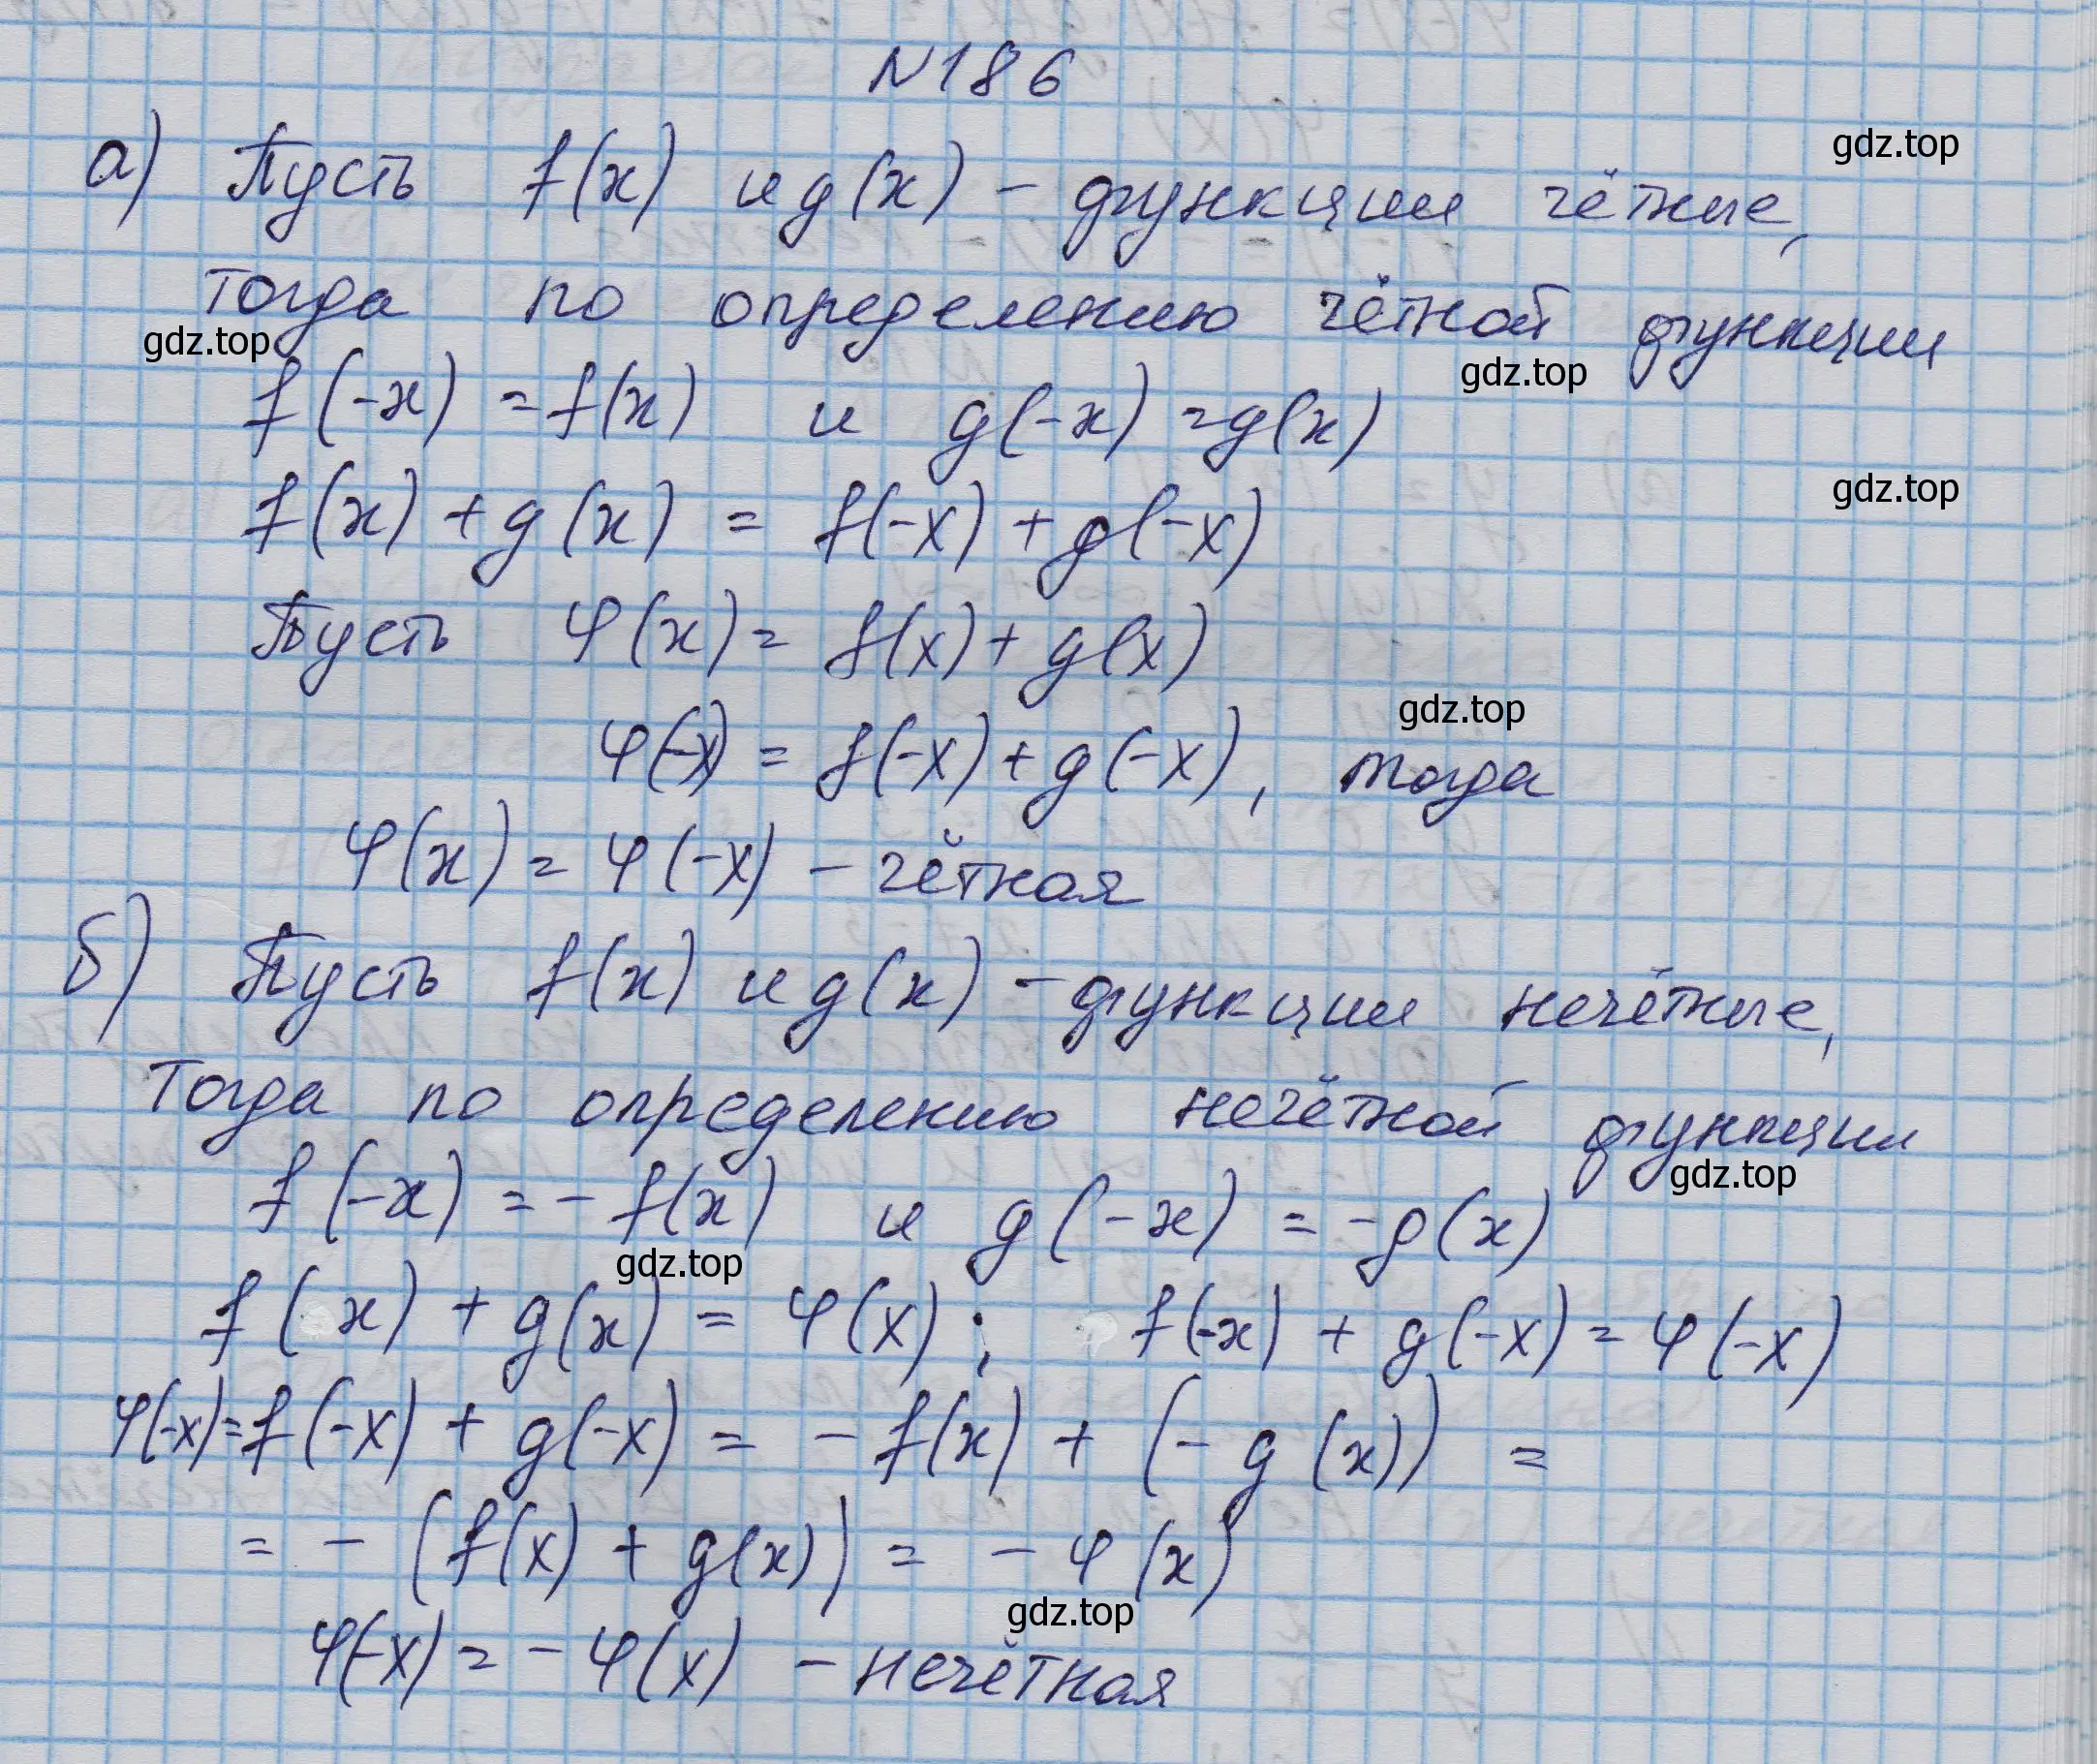 №186
а) Пусть f(x) и g(x) – функции чётные,
gdz.top
тогда по определению чётной функции
gdz.top
gdz.top
f(-x) = f(x) и g(-x) = g(x)
f(x) + g(x) = f(-x) + g(-x)
gdz.top
Пусть φ(x) = f(x) + g(x)
gdz.top
φ(-x) = f(-x) + g(-x), тогда
φ(x) = φ(-x) – чётная
б) Пусть f(x) и g(x) – функции нечётные,
Тогда по определению нечётной функции
gdz.top
f(-x) = - f(x) и g(-x) = -g(x)
gdz.top
f(x) + g(x) = φ(x); f(-x) + g(-x) = φ(-x)
φ(-x) = f(-x) + g(-x) = - f(x) + (- g(x)) =
= - (f(x) + g(x)) = - φ(x)
gdz.top
φ(-x) = - φ(x) – нечётная